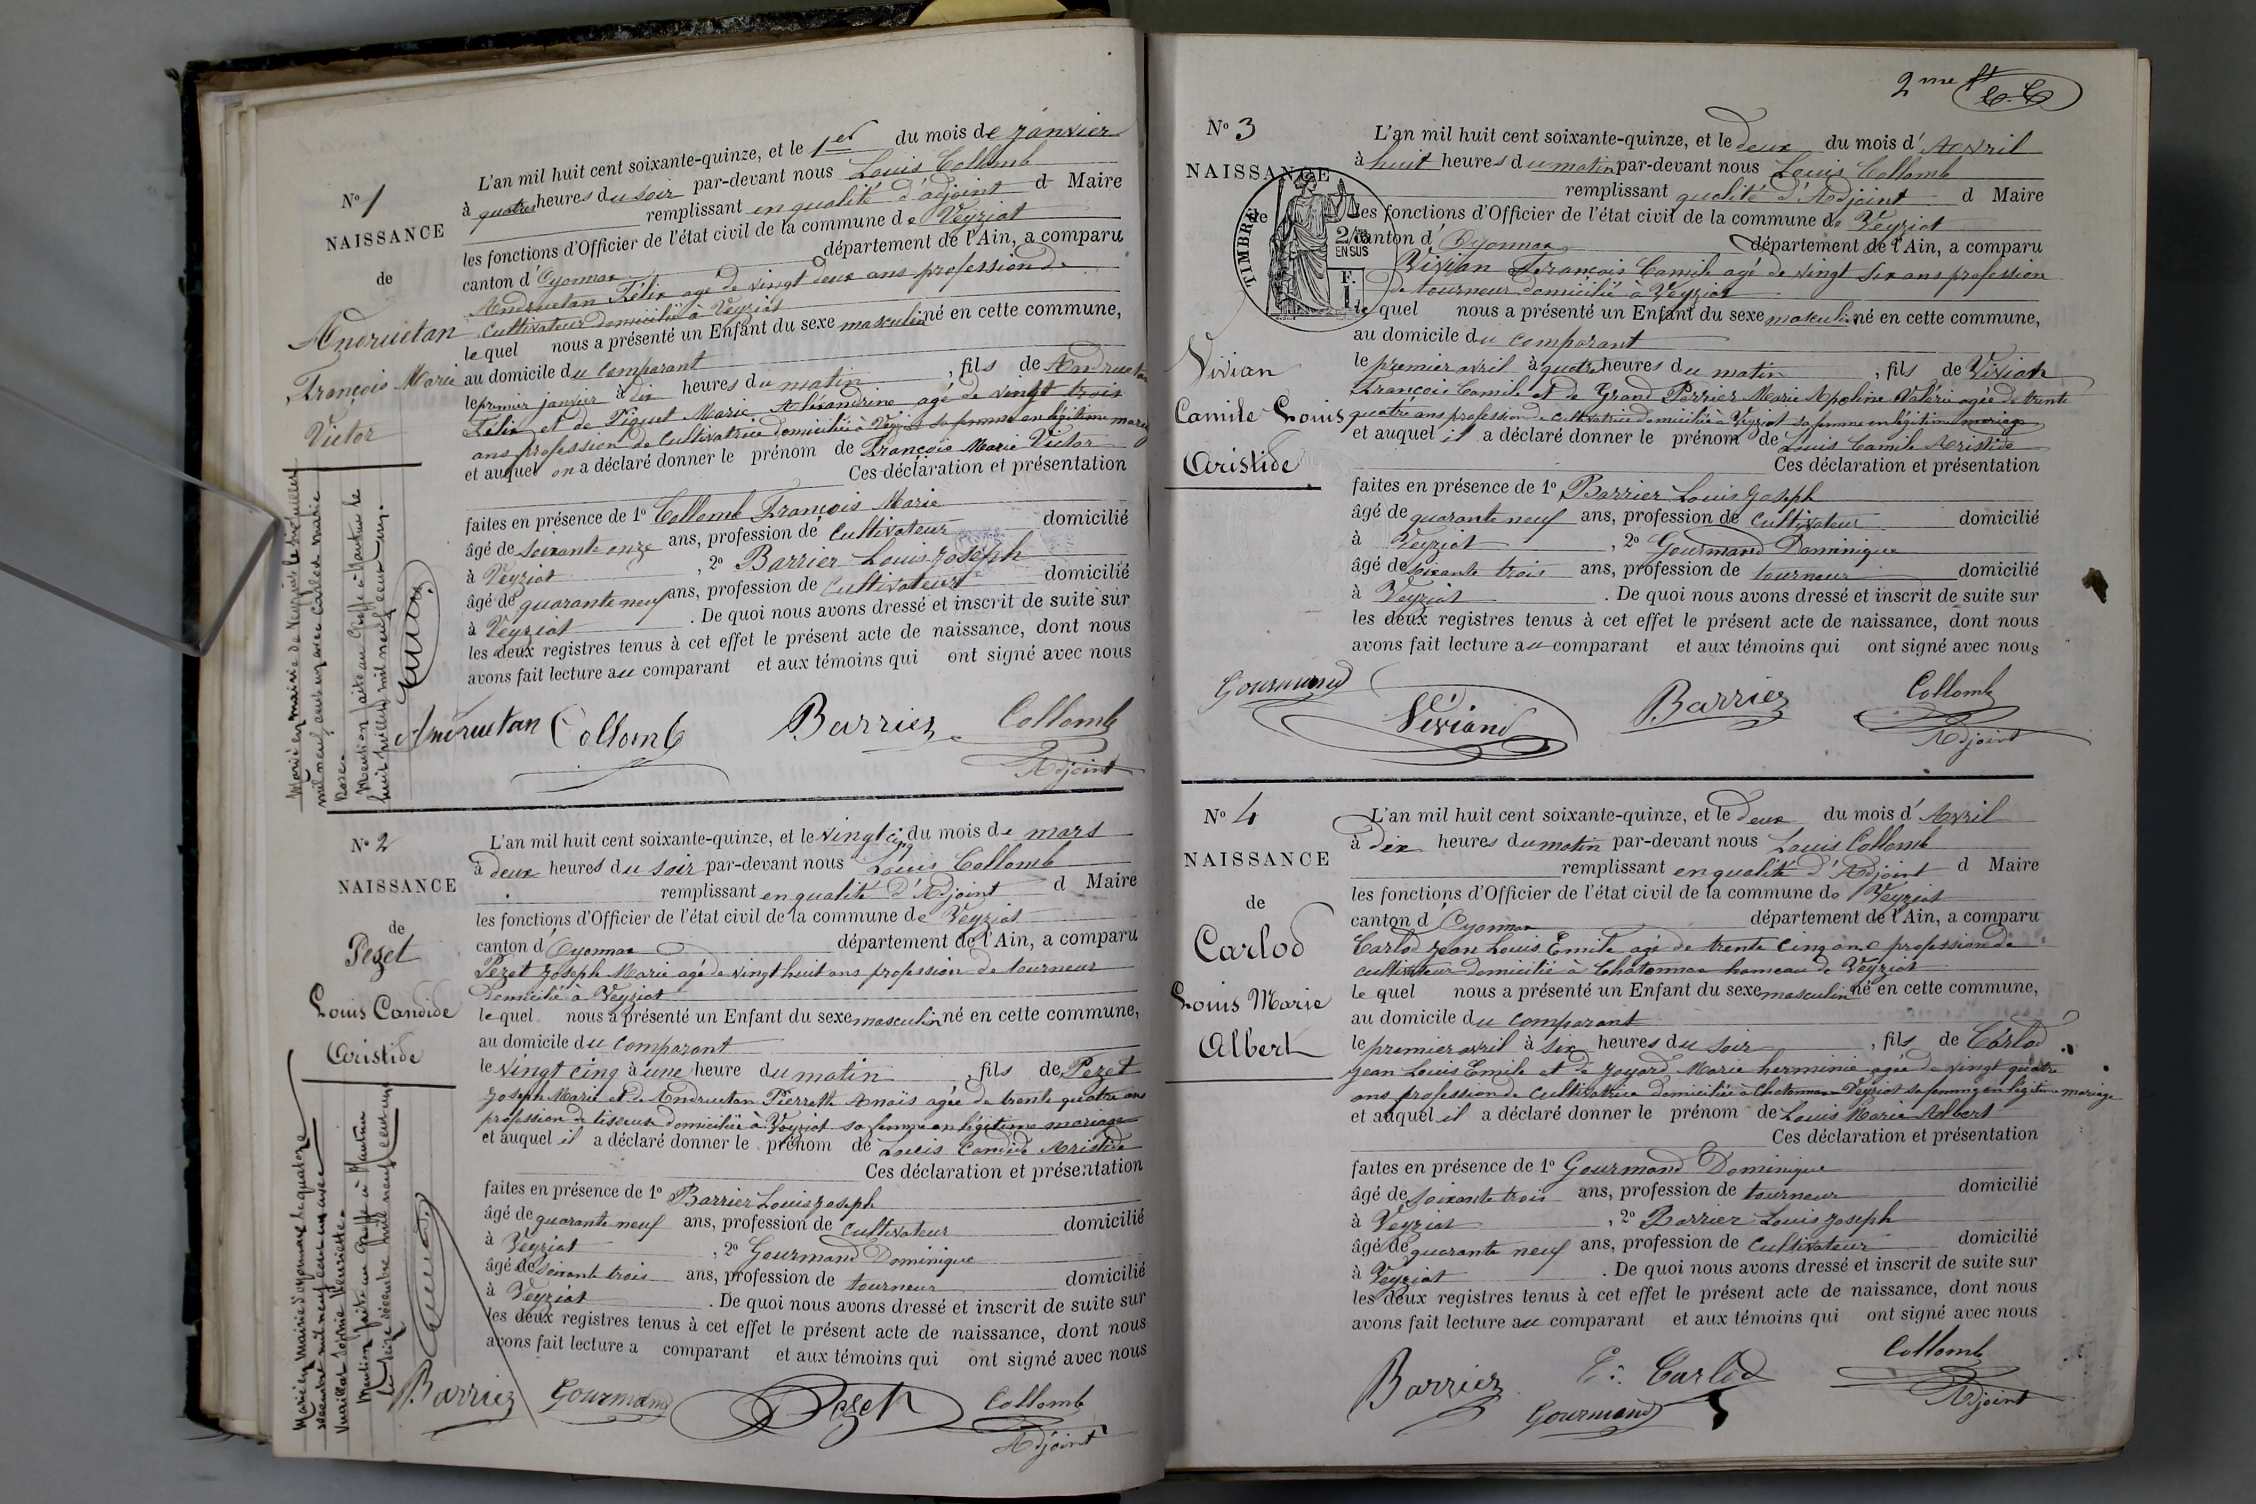 No 1
NAISSANCE
de
Andruetan
François Marie
Victor
L'an mil huit cent soixante-quinze, et le 1er du mois de janvier
à quatre heures du soir par-devant nous Louis Collomb
remplissant en qualité d'adjoint d Maire
les fonctions d'Officier de l'état civil de la commune de Veyziat
canton d'Oyonnax département de l'Ain, a comparu
Andruetan Félix agé de vingt deux ans profession de
cultivateur domicilié à Veyziat
le quel nous a présenté un Enfant du sexe masculin né en cette commune,
au domicile du comparant
le premier janvier à dix heures du matin, fils de Andruetan
Félix et de Piquet Marie Alexandrine agé de vingt trois
ans profession de cultivatrice domiciliée à Veyziat sa femme en légitime mariage
et auquel on a déclaré donner le prénom de François Marie Victor
Ces déclaration et présentation
faites en présence de 1o Collomb François Marie
âgé de soixante onze ans, profession de cultivateur domicilié
à Veyziat, 2o Barrier Louis Joseph
âgé de quarante neuf ans, profession de cultivateur domicilié
à Veyziat. De quoi nous avons dressé et inscrit de suite sur
les deux registres tenus à cet effet le présent acte de naissance, dont nous
avons fait lecture au comparant et aux témoins qui ont signé avec nous
Andruetan Collomb Barrier Collomb
Adjoint
Marié en mairie de Veyziat le six juillet
mil neuf cent un avec Carlod Marie
Rose.
Mention faite au Greffe à Nantua le
huit juillet mil neuf cent un.
No 2
NAISSANCE
de
Pezet
Louis Candide
Aristide
L'an mil huit cent soixante-quinze, et le vingt cinq du mois de mars
à deux heures du soir par-devant nous Louis Collomb
remplissant en qualité d'Adjoint d Maire
les fonctions d'Officier de l'état civil de la commune de Veyziat
canton d'Oyonnax département de l'Ain, a comparu
Pezet Joseph Marie agé de vingt huit ans profession de tourneur
domicilié à Veyziat
le quel nous a présenté un Enfant du sexe masculin né en cette commune,
au domicile du comparant
le vingt cinq à une heure du matin, fils de Pezet
Joseph Marie et de Andruetan Pierrette Anaïs agée de trente quatre ans
profession de tisseur domiciliée à Veyziat sa femme en légitime mariage
et auquel il a déclaré donner le prénom de Louis Candide Aristide
Ces déclaration et présentation
faites en présence de 1o Barrier Louis Joseph
âgé de quarante neuf ans, profession de cultivateur domicilié
à Veyziat, 2o Gourmand Dominique
âgé de soixante trois ans, profession de tourneur domicilié
à Veyziat. De quoi nous avons dressé et inscrit de suite sur
les deux registres tenus à cet effet le présent acte de naissance, dont nous
avons fait lecture a comparant et aux témoins qui ont signé avec nous
Barrier Gourmand Pezet Collomb
Adjoint
Marié en mairie d'oyonnax le quatorze
décembre mil neuf cent un avec
Sophie Henriette.
Mention faite au Greffe à Nantua
le seize décembre mil neuf cent un
2me ft
No 3
NAISSANCE
de
Vivian
Camile Louis
Aristide
TIMBRE
2/10
EN SUS
1 F.
L'an mil huit cent soixante-quinze, et le deux du mois d'Avril
à huit heures du matin par-devant nous Louis Collomb
remplissant qualité d'Adjoint d Maire
les fonctions d'Officier de l'état civil de la commune de Veyziat
canton d'Oyonnax département de l'Ain, a comparu
Vivian François Camile agé de vingt six ans profession
de tourneur domicilié à Veyziat
le quel nous a présenté un Enfant du sexe masculin né en cette commune,
au domicile du comparant
le premier avril à quatre heures du matin, fils de Vivian
François Camile et de Grand Perrier Marie Apoline Valérie agée de trente
quatre ans profession de cultivatrice domiciliée à Veyziat sa femme en légitime mariage
et auquel il a déclaré donner le prénom de Louis Camile Aristide
Ces déclaration et présentation
faites en présence de 1o Barrier Louis Joseph
âgé de quarante neuf ans, profession de cultivateur domicilié
à Veyziat, 2o Gourmand Dominique
âgé de soixante trois ans, profession de tourneur domicilié
à Veyziat. De quoi nous avons dressé et inscrit de suite sur
les deux registres tenus à cet effet le présent acte de naissance, dont nous
avons fait lecture au comparant et aux témoins qui ont signé avec nous
Gourmand Viviand Barrier Collomb
Adjoint
No 4
NAISSANCE
de
Carlod
Louis Marie
Albert
L'an mil huit cent soixante-quinze, et le deux du mois d'Avril
à dix heures du matin par-devant nous Louis Collomb
remplissant en qualité d'Adjoint d Maire
les fonctions d'Officier de l'état civil de la commune de Veyziat
canton d'Oyonnax département de l'Ain, a comparu
Carlod Jean Louis Emile agé de trente cinq ans profession de
cultivateur domicilié à Chatonnax hameau de Veyziat
le quel nous a présenté un Enfant du sexe masculin né en cette commune,
au domicile du comparant
le premier avril à six heures du soir, fils de Carlod
Jean Louis Emile et de Joyard Marie herminie agée de vingt quatre
ans profession de cultivatrice domiciliée à Chatonnax Veyziat sa femme en légitime mariage
et auquel il a déclaré donner le prénom de Louis Marie Albert
Ces déclaration et présentation
faites en présence de 1o Gourmand Dominique
âgé de soixante trois ans, profession de tourneur domicilié
à Veyziat, 2o Barrier Louis Joseph
âgé de quarante neuf ans, profession de cultivateur domicilié
à Veyziat. De quoi nous avons dressé et inscrit de suite sur
les deux registres tenus à cet effet le présent acte de naissance, dont nous
avons fait lecture au comparant et aux témoins qui ont signé avec nous
Barrier E. Carlod Collomb
Gourmand Adjoint